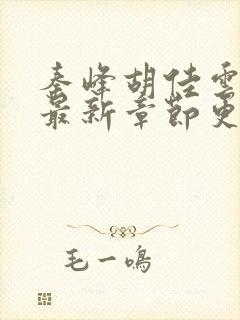 秦峰胡佳雲
最新章節更
毛一鳴